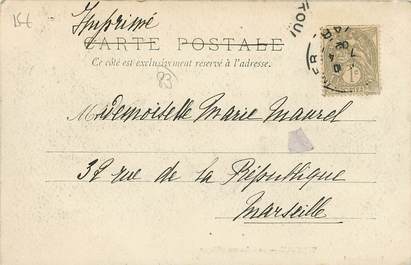 15€
Imprimé
CARTE POSTALE
Ce côté est exclusivement réservé à l'adresse.
(93)
Mademoiselle Marie Maurel
32 rue de la République
Marseille